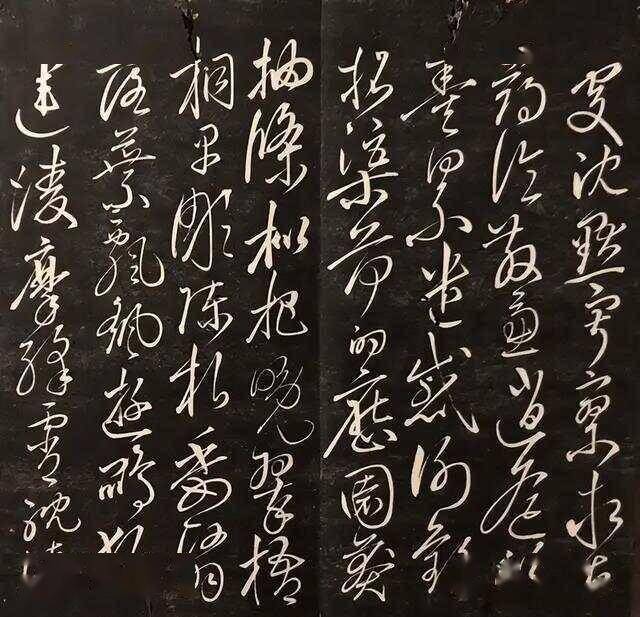 處沈默寂寥求古
尋論散慮逍遙欣
奏累遣感謝歡
招渠荷的歷園莽
抽條枇杷晚翠梧
桐早彫陳根委翳
落葉飄颻遊鵾獨
運凌摩絳霄耽讀